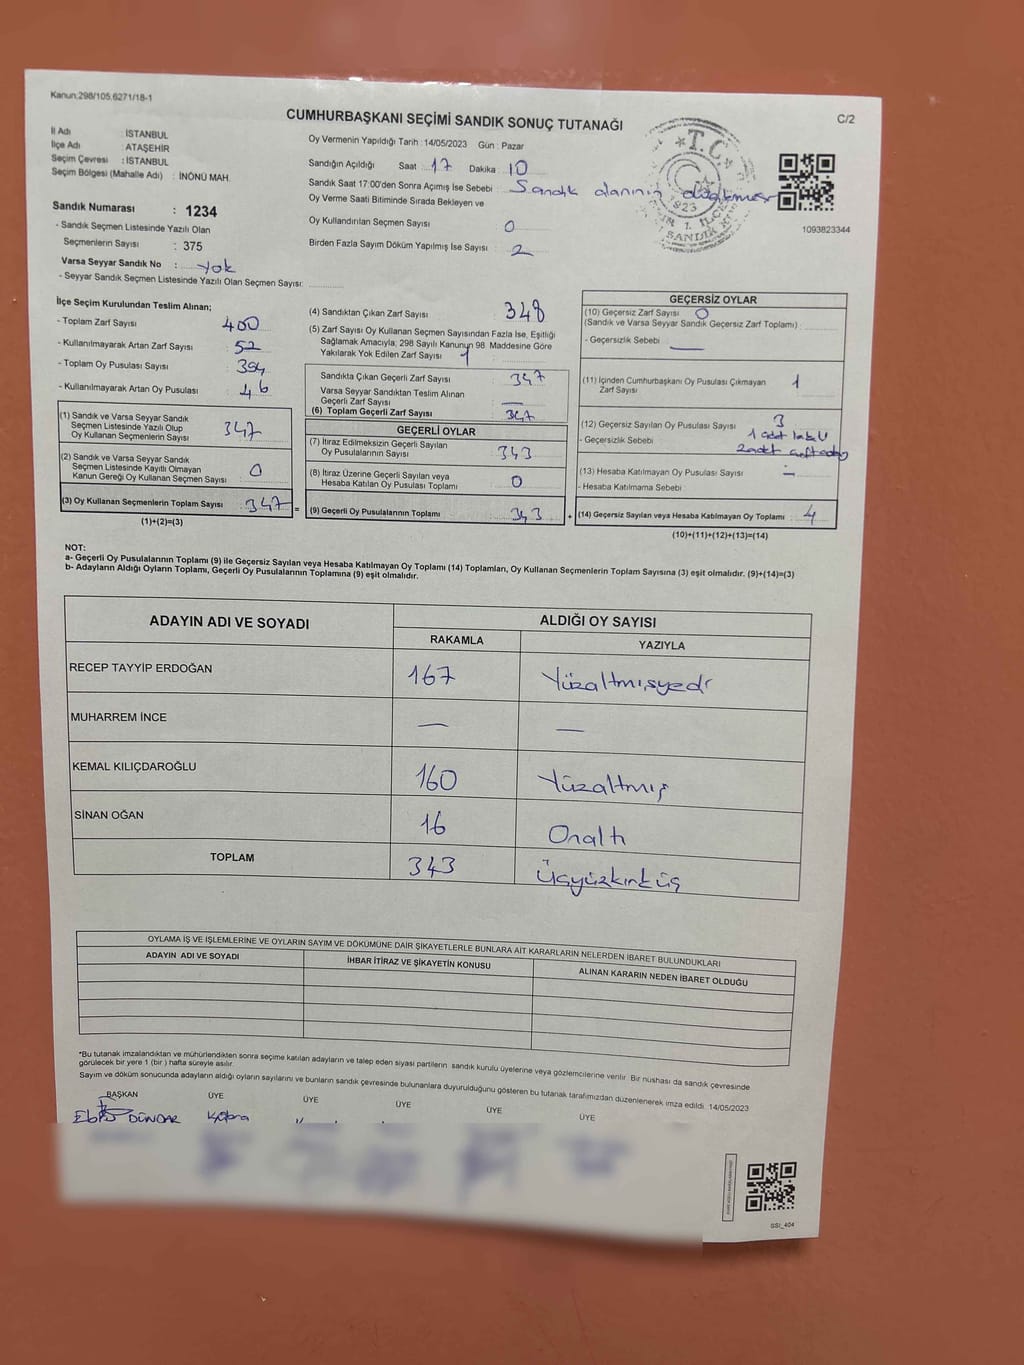 Kanun.298/105,6271/18-1
CUMHURBAŞKANI SEÇİMİ SANDIK SONUÇ TUTANAĞI
C/2
İl Adı : İSTANBUL
İlçe Adı : ATAŞEHİR
Seçim Çevresi : İSTANBUL
Seçim Bölgesi (Mahalle Adı) : İNÖNÜ MAH.
Sandık Numarası : 1234
- Sandık Seçmen Listesinde Yazılı Olan
Seçmenlerin Sayısı : 375
Varsa Seyyar Sandık No : Yok
- Seyyar Sandık Seçmen Listesinde Yazılı Olan Seçmen Sayısı:
Oy Vermenin Yapıldığı Tarih :14/05/2023 Gün : Pazar
Sandığın Açıldığı Saat 17 Dakika 10
Sandık Saat 17:00'den Sonra Açımış İse Sebebi : Sandık alanının
Oy Verme Saati Bitiminde Sırada Bekleyen ve
Oy Kullandırılan Seçmen Sayısı 0
Birden Fazla Sayım Döküm Yapılmış İse Sayısı 2
T.C.
1923
1093823344
İlçe Seçim Kurulundan Teslim Alınan;
- Toplam Zarf Sayısı 400
- Kullanılmayarak Artan Zarf Sayısı 52
- Toplam Oy Pusulası Sayısı 394
- Kullanılmayarak Artan Oy Pusulası 46
(1) Sandık ve Varsa Seyyar Sandık
Seçmen Listesinde Yazılı Olup
Oy Kullanan Seçmenlerin Sayısı 347
(2) Sandık ve Varsa Seyyar Sandık
Seçmen Listesinde Kayıtlı Olmayan
Kanun Gereği Oy Kullanan Seçmen Sayısı 0
(3) Oy Kullanan Seçmenlerin Toplam Sayısı 347 =
(1)+(2)=(3)
(4) Sandıktan Çıkan Zarf Sayısı 348
(5) Zarf Sayısı Oy Kullanan Seçmen Sayısından Fazla İse, Eşitliği
Sağlamak Amacıyla; 298 Sayılı Kanunun 98. Maddesine Göre
Yakılarak Yok Edilen Zarf Sayısı 1
Sandıkta Çıkan Geçerli Zarf Sayısı 347
Varsa Seyyar Sandıktan Teslim Alınan
Geçerli Zarf Sayısı —
(6) Toplam Geçerli Zarf Sayısı 347
GEÇERLİ OYLAR
(7) İtiraz Edilmeksizin Geçerli Sayılan
Oy Pusulalarının Sayısı 343
(8) İtiraz Üzerine Geçerli Sayılan veya
Hesaba Katılan Oy Pusulası Toplamı 0
(9) Geçerli Oy Pusulalarının Toplamı 343 +
GEÇERSİZ OYLAR
(10) Geçersiz Zarf Sayısı 0
(Sandık ve Varsa Seyyar Sandık Geçersiz Zarf Toplamı) :
- Geçersizlik Sebebi : —
(11) İçinden Cumhurbaşkanı Oy Pusulası Çıkmayan
Zarf Sayısı 1
(12) Geçersiz Sayılan Oy Pusulası Sayısı 3
- Geçersizlik Sebebi 1 adet
2 adet
(13) Hesaba Katılmayan Oy Pusulası Sayısı —
- Hesaba Katılmama Sebebi :
(14) Geçersiz Sayılan veya Hesaba Katılmayan Oy Toplamı 4
(10)+(11)+(12)+(13)=(14)
NOT:
a- Geçerli Oy Pusulalarının Toplamı (9) ile Geçersiz Sayılan veya Hesaba Katılmayan Oy Toplamı (14) Toplamları, Oy Kullanan Seçmenlerin Toplam Sayısına (3) eşit olmalıdır. (9)+(14)=(3)
b- Adayların Aldığı Oyların Toplamı, Geçerli Oy Pusulalarının Toplamına (9) eşit olmalıdır.
ADAYIN ADI VE SOYADI
ALDIĞI OY SAYISI
RAKAMLA YAZIYLA
RECEP TAYYİP ERDOĞAN 167 Yüzaltmışyedi
MUHARREM İNCE — —
KEMAL KILIÇDAROĞLU 160 Yüzaltmış
SİNAN OĞAN 16 Onaltı
TOPLAM 343 Üçyüzkırküç
OYLAMA İŞ VE İŞLEMLERİNE VE OYLARIN SAYIM VE DÖKÜMÜNE DAİR ŞİKAYETLERLE BUNLARA AİT KARARLARIN NELERDEN İBARET BULUNDUKLARI
ADAYIN ADI VE SOYADI İHBAR İTİRAZ VE ŞİKAYETİN KONUSU ALINAN KARARIN NEDEN İBARET OLDUĞU
*Bu tutanak imzalandıktan ve mühürlendikten sonra seçime katılan adayların ve talep eden siyasi partilerin sandık kurulu üyelerine veya gözlemcilerine verilir. Bir nüshası da sandık çevresinde
görülecek bir yere 1 (bir ) hafta süreyle asılır.
Sayım ve döküm sonucunda adayların aldığı oyların sayılarını ve bunların sandık çevresinde bulunanlara duyurulduğunu gösteren bu tutanak tarafımızdan düzenlenerek imza edildi. 14/05/2023
BAŞKAN ÜYE ÜYE ÜYE ÜYE ÜYE
DÜNDAR Kübra
SSI_404